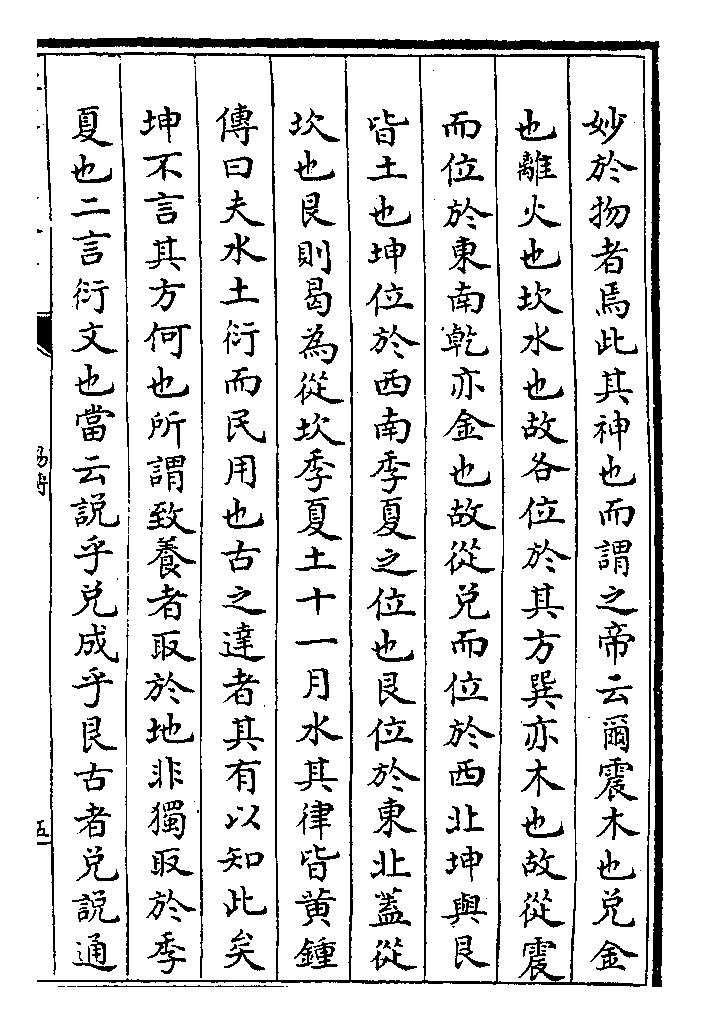 妙於物者焉此其神也而謂之帝云爾震木也兑金
也離火也坎水也故各位於其方巽亦木也故從震
而位於東南乾亦金也故從兑而位於西北坤與艮
皆土也坤位於西南季夏之位也艮位於東北蓋從
坎也艮則曷為從坎季夏土十一月水其律皆黄鍾
傳曰夫水土衍而民用也古之達者其有以知此矣
坤不言其方何也所謂致養者取於地非獨取於季
夏也二言衍文也當云説乎兑成乎艮古者兑説通
易傳
五